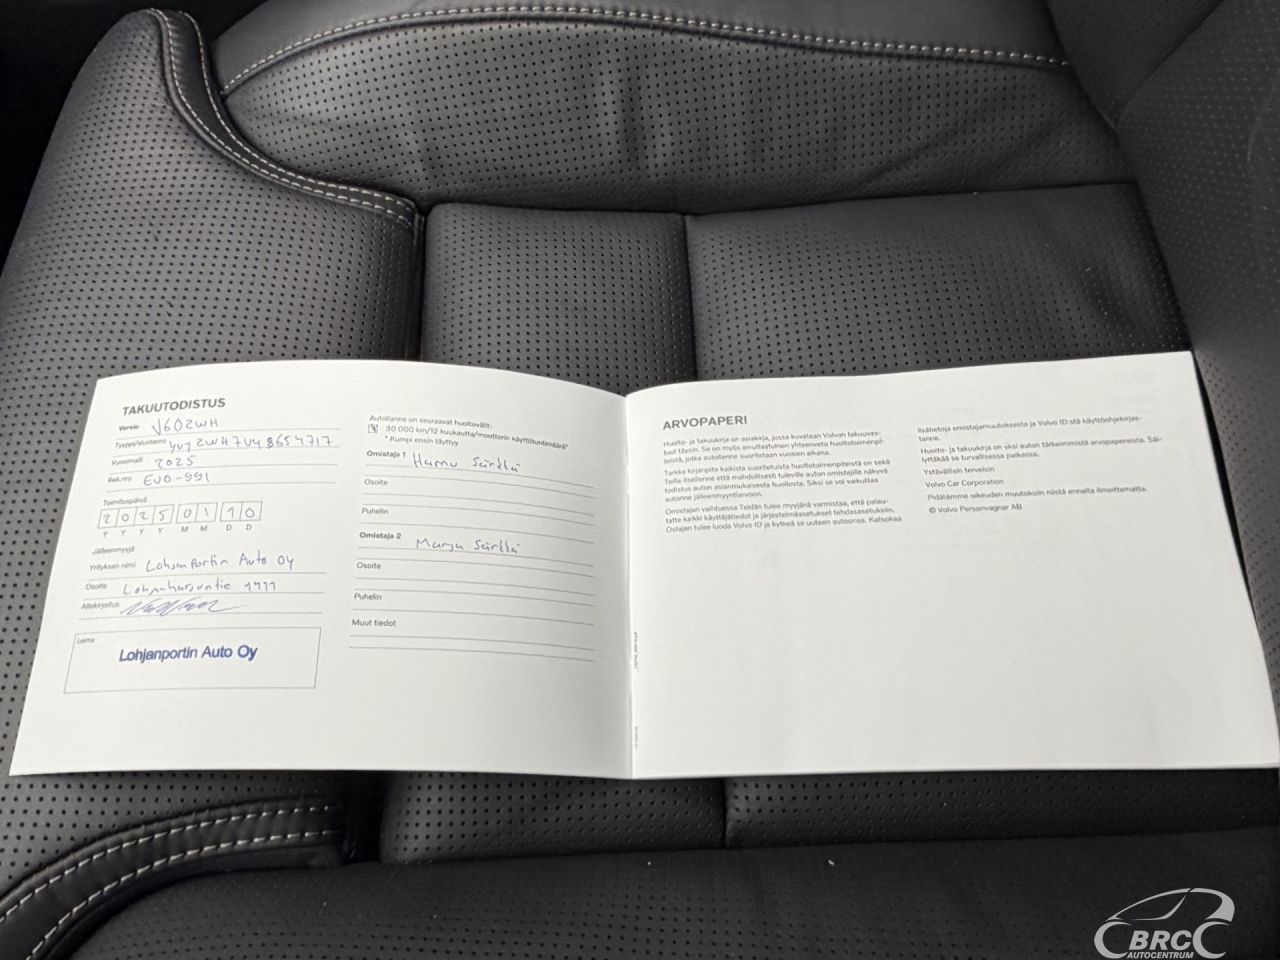 TAKUUTODISTUS
Versio V602WH
Tyyppi/alustanro YV1ZWH7VY8654717
Vuosimalli 2025
Rek.nro EUO-991
Toimituspäivä
2 0 2 5 0 1 1 0
Y Y Y Y M M D D
Jälleenmyyjä
Yrityksen nimi Lohjanportin Auto Oy
Osoite Lohjanharjuntie 1411
Allekirjoitus
Leima
Lohjanportin Auto Oy
Autollanne on seuraavat huoltovälit:
30 000 km/12 kuukautta/moottorin käyttötuntimäärä*
* Kumpi ensin täyttyy
Omistaja 1 Hannu Särkkä
Osoite
Puhelin
Omistaja 2 Marja Särkkä
Osoite
Puhelin
Muut tiedot
ARVOPAPERI
Huolto- ja takuukirja on asiakirja, jossa kuvataan Volvon takuuvas-
tuut täysin. Se on myös ainutlaatuinen yhteenveto huoltotoimenpi-
teistä, jotka autollenne suoritetaan vuosien aikana.
Tarkka kirjanpito kaikista suoritetuista huoltotoimenpiteistä on sekä
Teille itsellenne että mahdollisesti tuleville auton omistajille näkyvä
todistus auton asianmukaisesta huollosta. Siksi se voi vaikuttaa
autonne jälleenmyyntiarvoon.
Omistajan vaihtuessa Teidän tulee myyjänä varmistaa, että palau-
tatte kaikki käyttäjätiedot ja järjestelmäasetukset tehdasasetuksiin.
Ostajan tulee luoda Volvo ID ja kytkeä se uuteen autoonsa. Katsokaa
lisätietoja omistajamuutoksesta ja Volvo ID:stä käyttöohjekirjas-
tanne.
Huolto- ja takuukirja on yksi auton tärkeimmistä arvopapereista. Säi-
lyttäkää se turvallisessa paikassa.
Ystävällisin terveisin
Volvo Car Corporation
Pidätämme oikeuden muutoksiin niistä ennalta ilmoittamatta.
© Volvo Personvagnar AB
BRC
AUTOCENTRUM